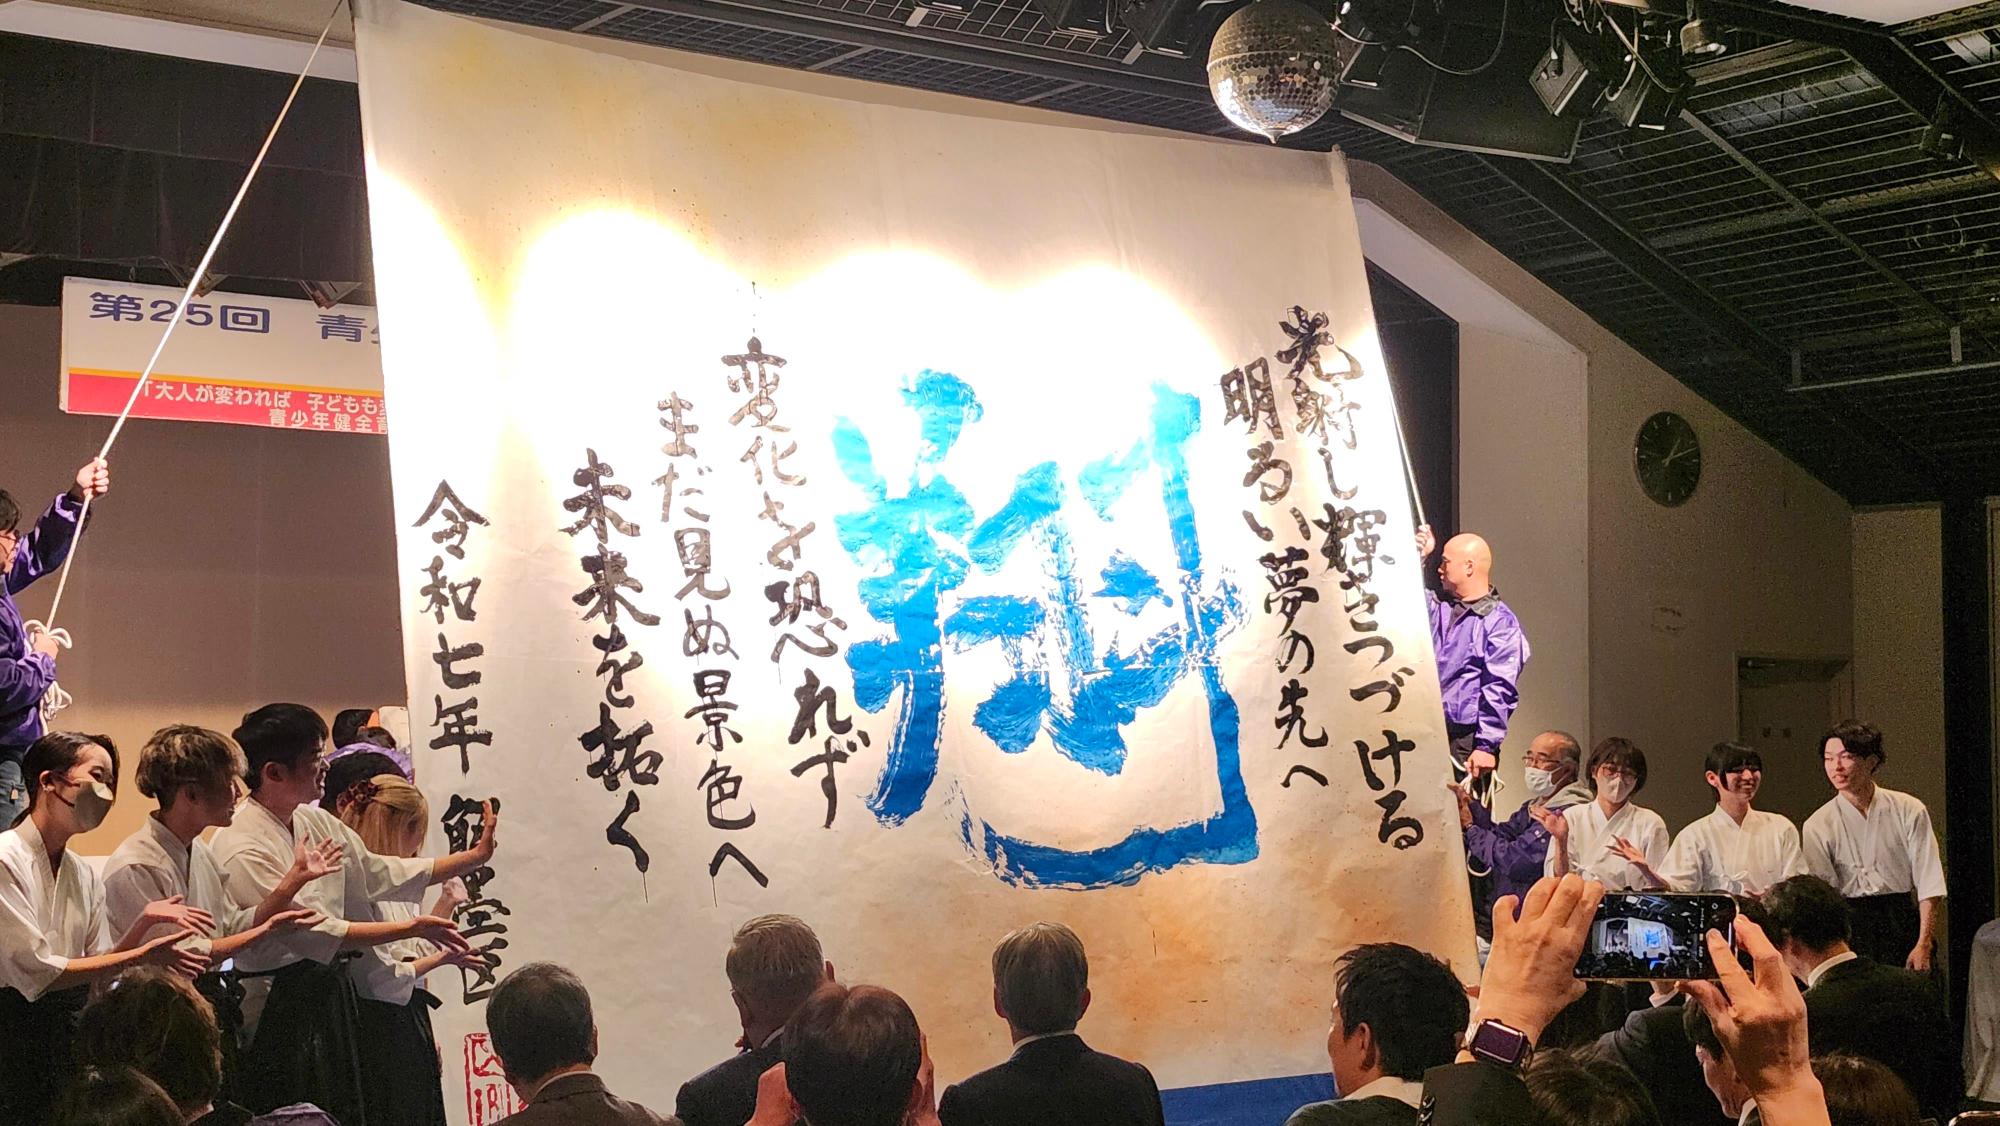 第25回 青
「大人が変われば 子どもも
青少年健全
光射し輝きつづける
明るい夢の先へ
翔
変化を恐れず
まだ見ぬ景色へ
未来を拓く
令和七年